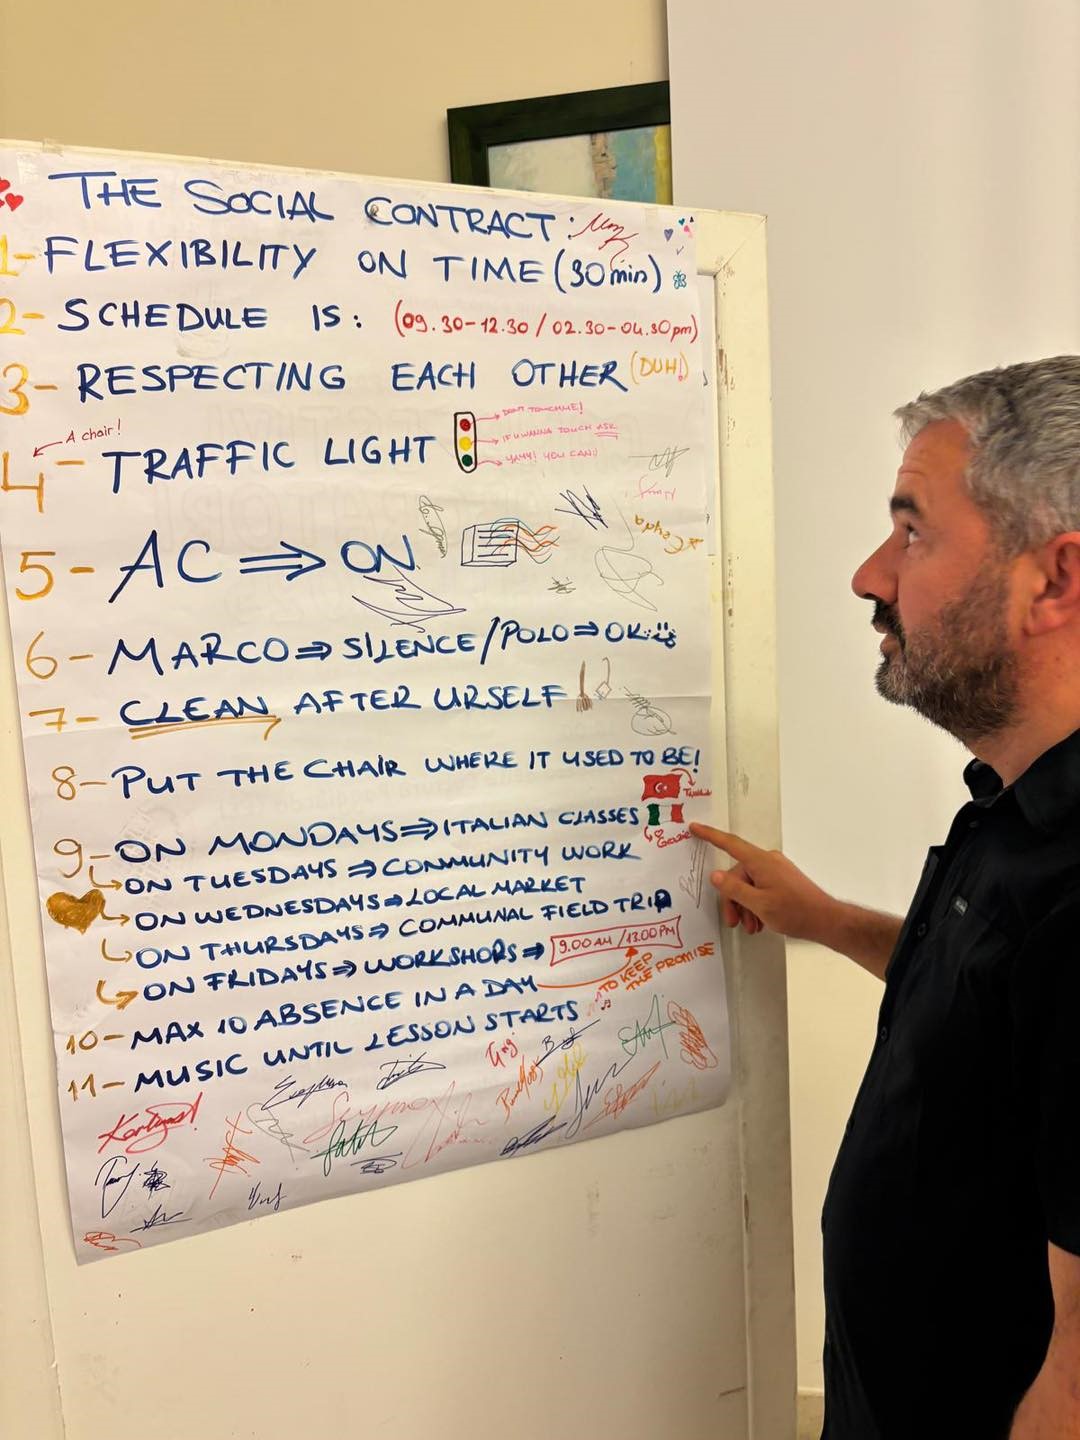 THE SOCIAL CONTRACT:
1- FLEXIBILITY ON TIME (30min)
2- SCHEDULE IS: (09.30-12.30 / 02.30-04.30pm)
3- RESPECTING EACH OTHER (DUH!)
A chair!
4- TRAFFIC LIGHT
DON'T TOUCH ME!
IF U WANNA TOUCH ASK
YAYY! YOU CAN:)
5- AC ⇒ ON
Ceyda
6- MARCO ⇒ SILENCE / POLO ⇒ OK
7- CLEAN AFTER URSELF
8- PUT THE CHAIR WHERE IT USED TO BE!
9- ON MONDAYS ⇒ ITALIAN CLASSES
Grazie
ON TUESDAYS ⇒ COMMUNITY WORK
ON WEDNESDAYS ⇒ LOCAL MARKET
ON THURSDAYS ⇒ COMMUNAL FIELD TRIP
ON FRIDAYS ⇒ WORKSHOPS ⇒ 9.00 AM / 13.00 PM
10- MAX 10 ABSENCE IN A DAY
TO KEEP
THE PROMISE
11- MUSIC UNTIL LESSON STARTS